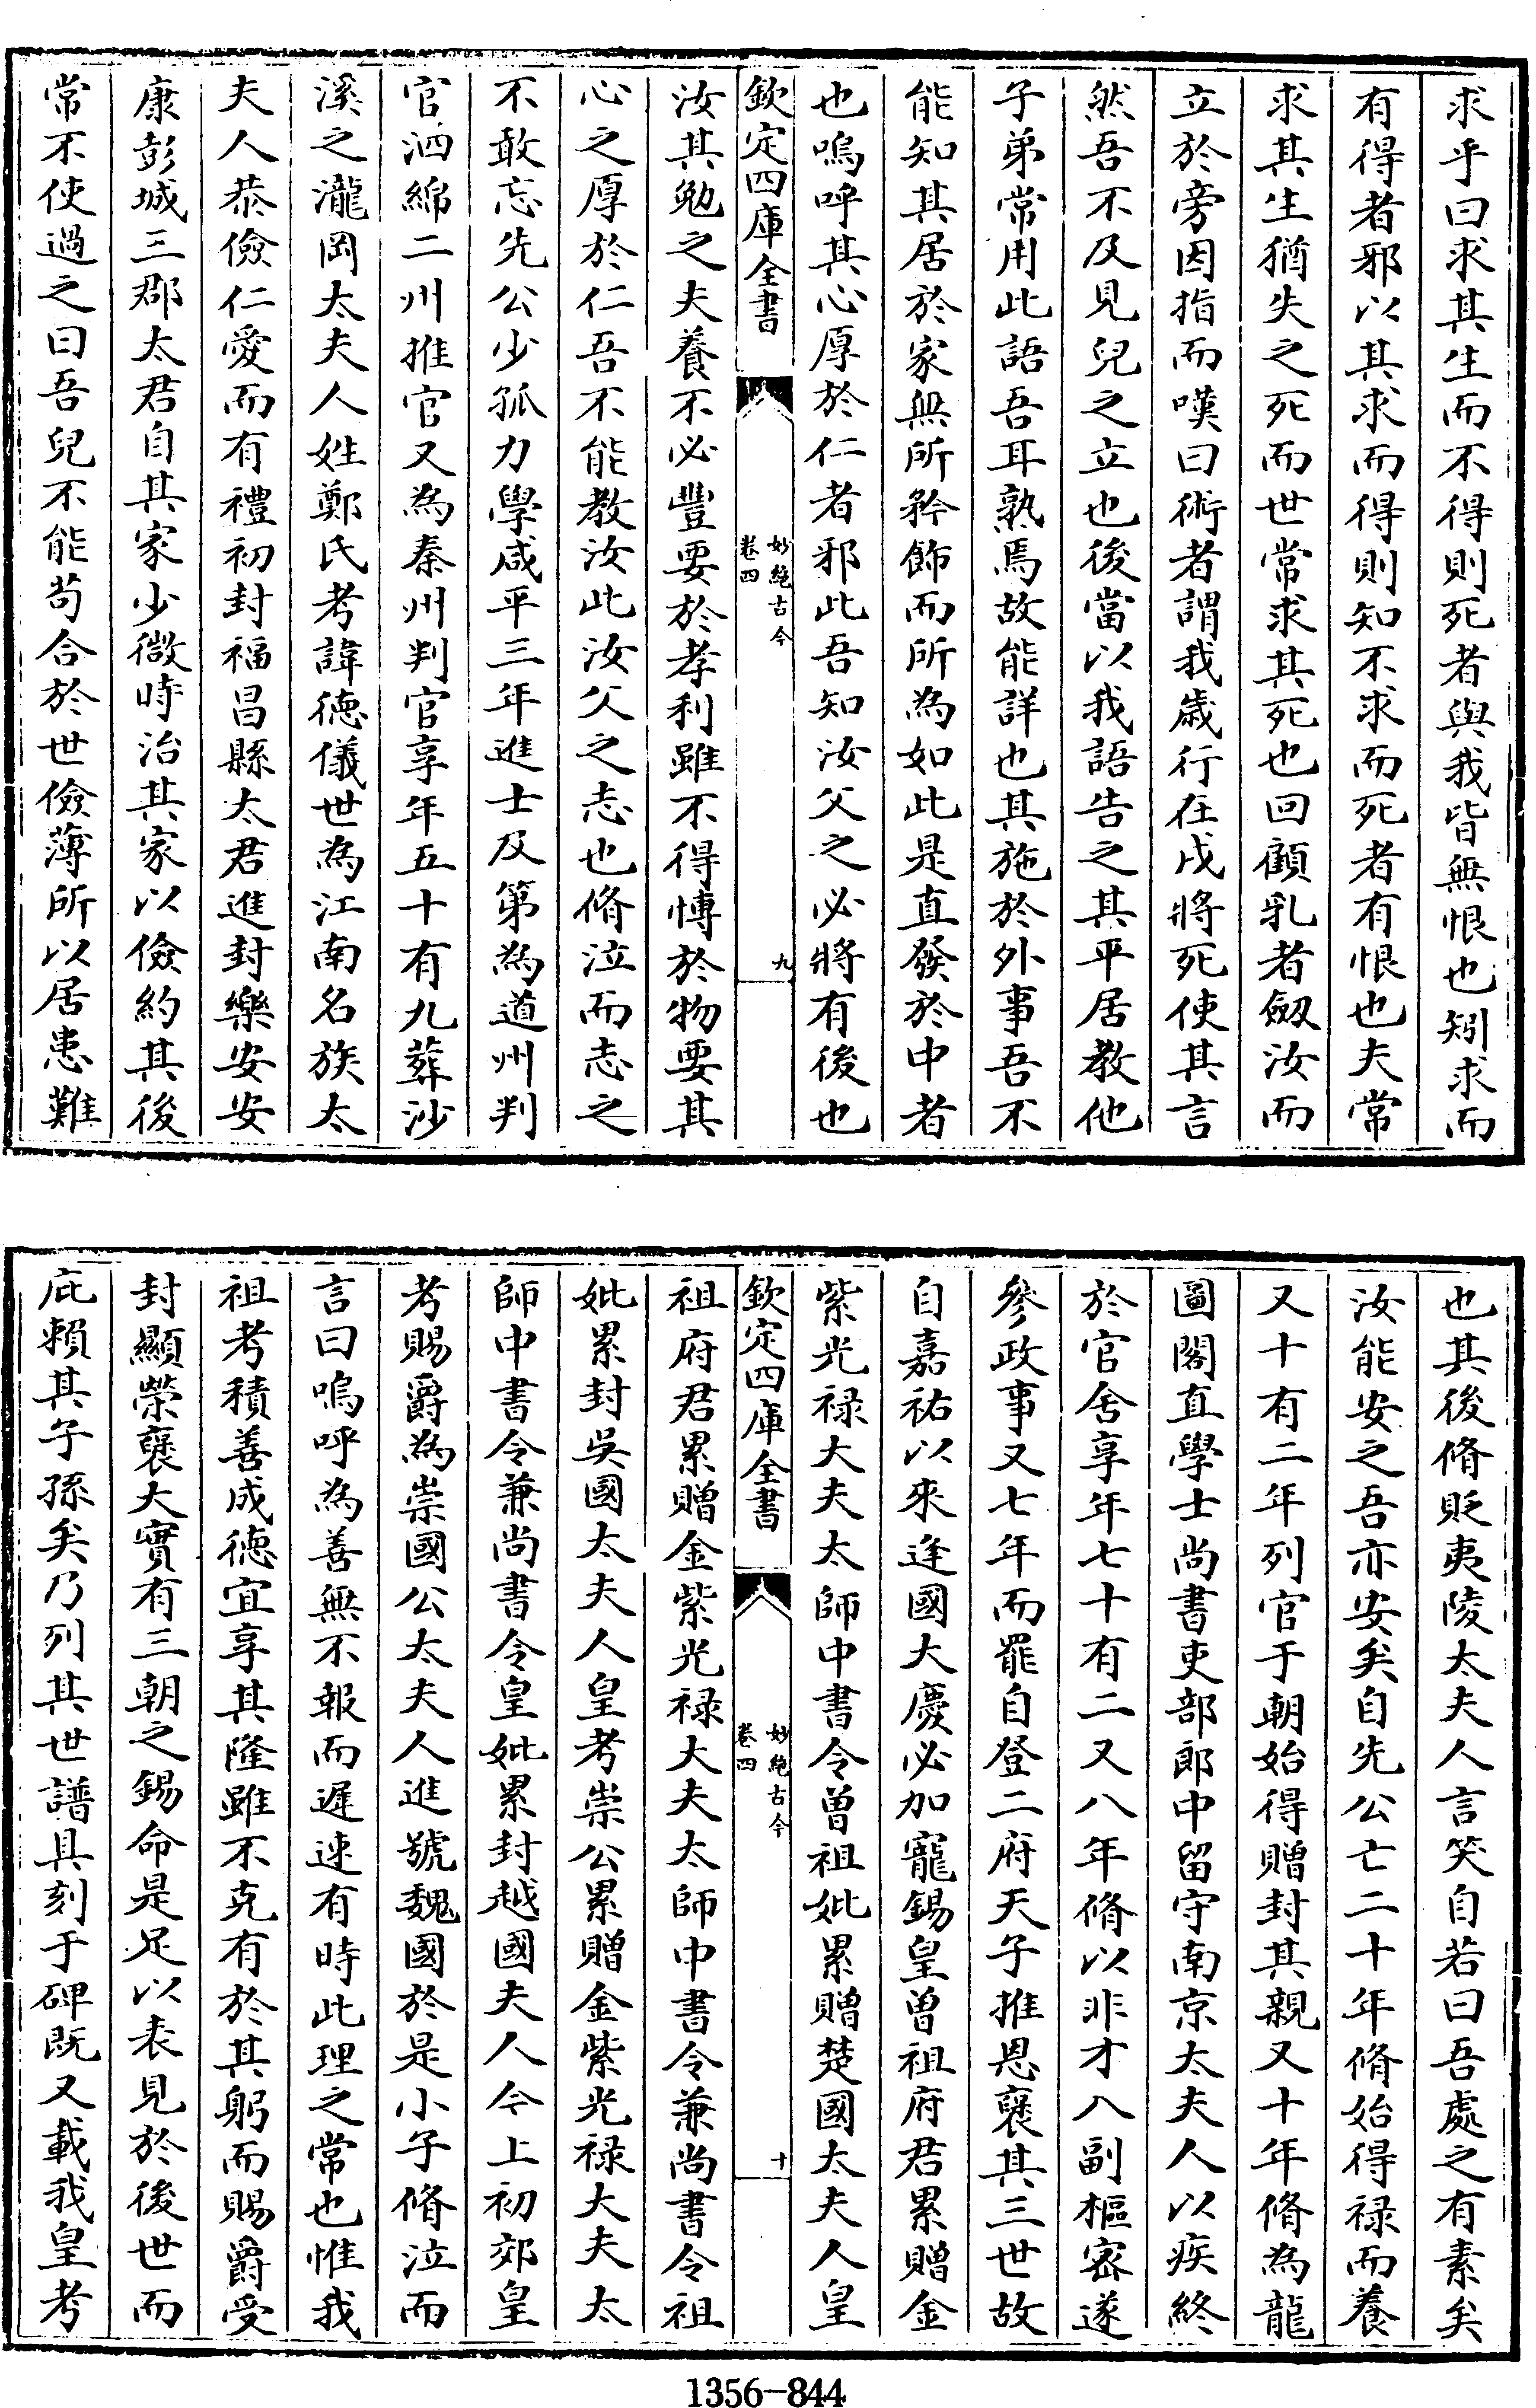 求乎曰求其生而不得則死者與我皆無恨也矧求而
有得者邪以其求而得則知不求而死者有恨也夫常
求其生猶失之死而世常求其死也回顧乳者劔汝而
立於旁因指而嘆曰術者謂我歲行在戌將死使其言
然吾不及見兒之立也後當以我語告之其平居教他
子弟常用此語吾耳熟焉故能詳也其施於外事吾不
能知其居於家無所矜飾而所為如此是直發於中者
也嗚呼其心厚於仁者邪此吾知汝父之必將有後也
欽定四庫全書
妙絶古今
卷四
九
汝其勉之夫養不必豐要於孝利雖不得慱於物要其
心之厚於仁吾不能教汝此汝父之志也脩泣而志之
不敢忘先公少孤力學咸平三年進士及第為道州判
官泗綿二州推官又為秦州判官享年五十有九葬沙
溪之瀧岡太夫人姓鄭氏考諱德儀世為江南名族太
夫人恭儉仁愛而有禮初封福昌縣太君進封樂安安
康彭城三郡太君自其家少微時治其家以儉約其後
常不使過之曰吾兒不能苟合於世儉薄所以居患難
也其後脩貶夷陵太夫人言笑自若曰吾處之有素矣
汝能安之吾亦安矣自先公亡二十年脩始得禄而養
又十有二年列官于朝始得贈封其親又十年脩為龍
圖閣直學士尚書吏部郎中留守南京太夫人以疾終
於官舍享年七十有二又八年脩以非才入副樞密遂
參政事又七年而罷自登二府天子推恩褒其三世故
自嘉祐以來逢國大慶必加寵錫皇曽祖府君累贈金
紫光禄大夫太師中書令曽祖妣累贈楚國太夫人皇
欽定四庫全書
妙絶古今
卷四
十
祖府君累贈金紫光禄大夫太師中書令兼尚書令祖
妣累封吳國太夫人皇考崇公累贈金紫光禄大夫太
師中書令兼尚書令皇妣累封越國夫人今上初郊皇
考賜爵為崇國公太夫人進號魏國於是小子脩泣而
言曰嗚呼為善無不報而遲速有時此理之常也惟我
祖考積善成德宜享其隆雖不克有於其躬而賜爵受
封顯榮褒大實有三朝之錫命是足以表見於後世而
庇賴其子孫矣乃列其世譜具刻于碑既又載我皇考
1356-844